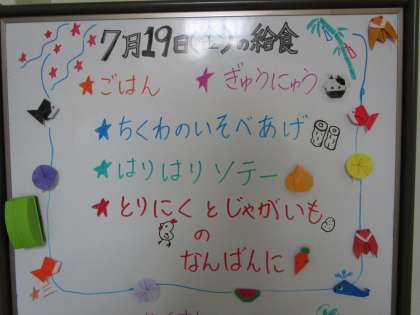 7月19日(土)の給食
★ごはん ★ぎゅうにゅう
★ちくわのいそべあげ
★はりはりソテー
★とりにくとじゃがいも
の
なんばんに